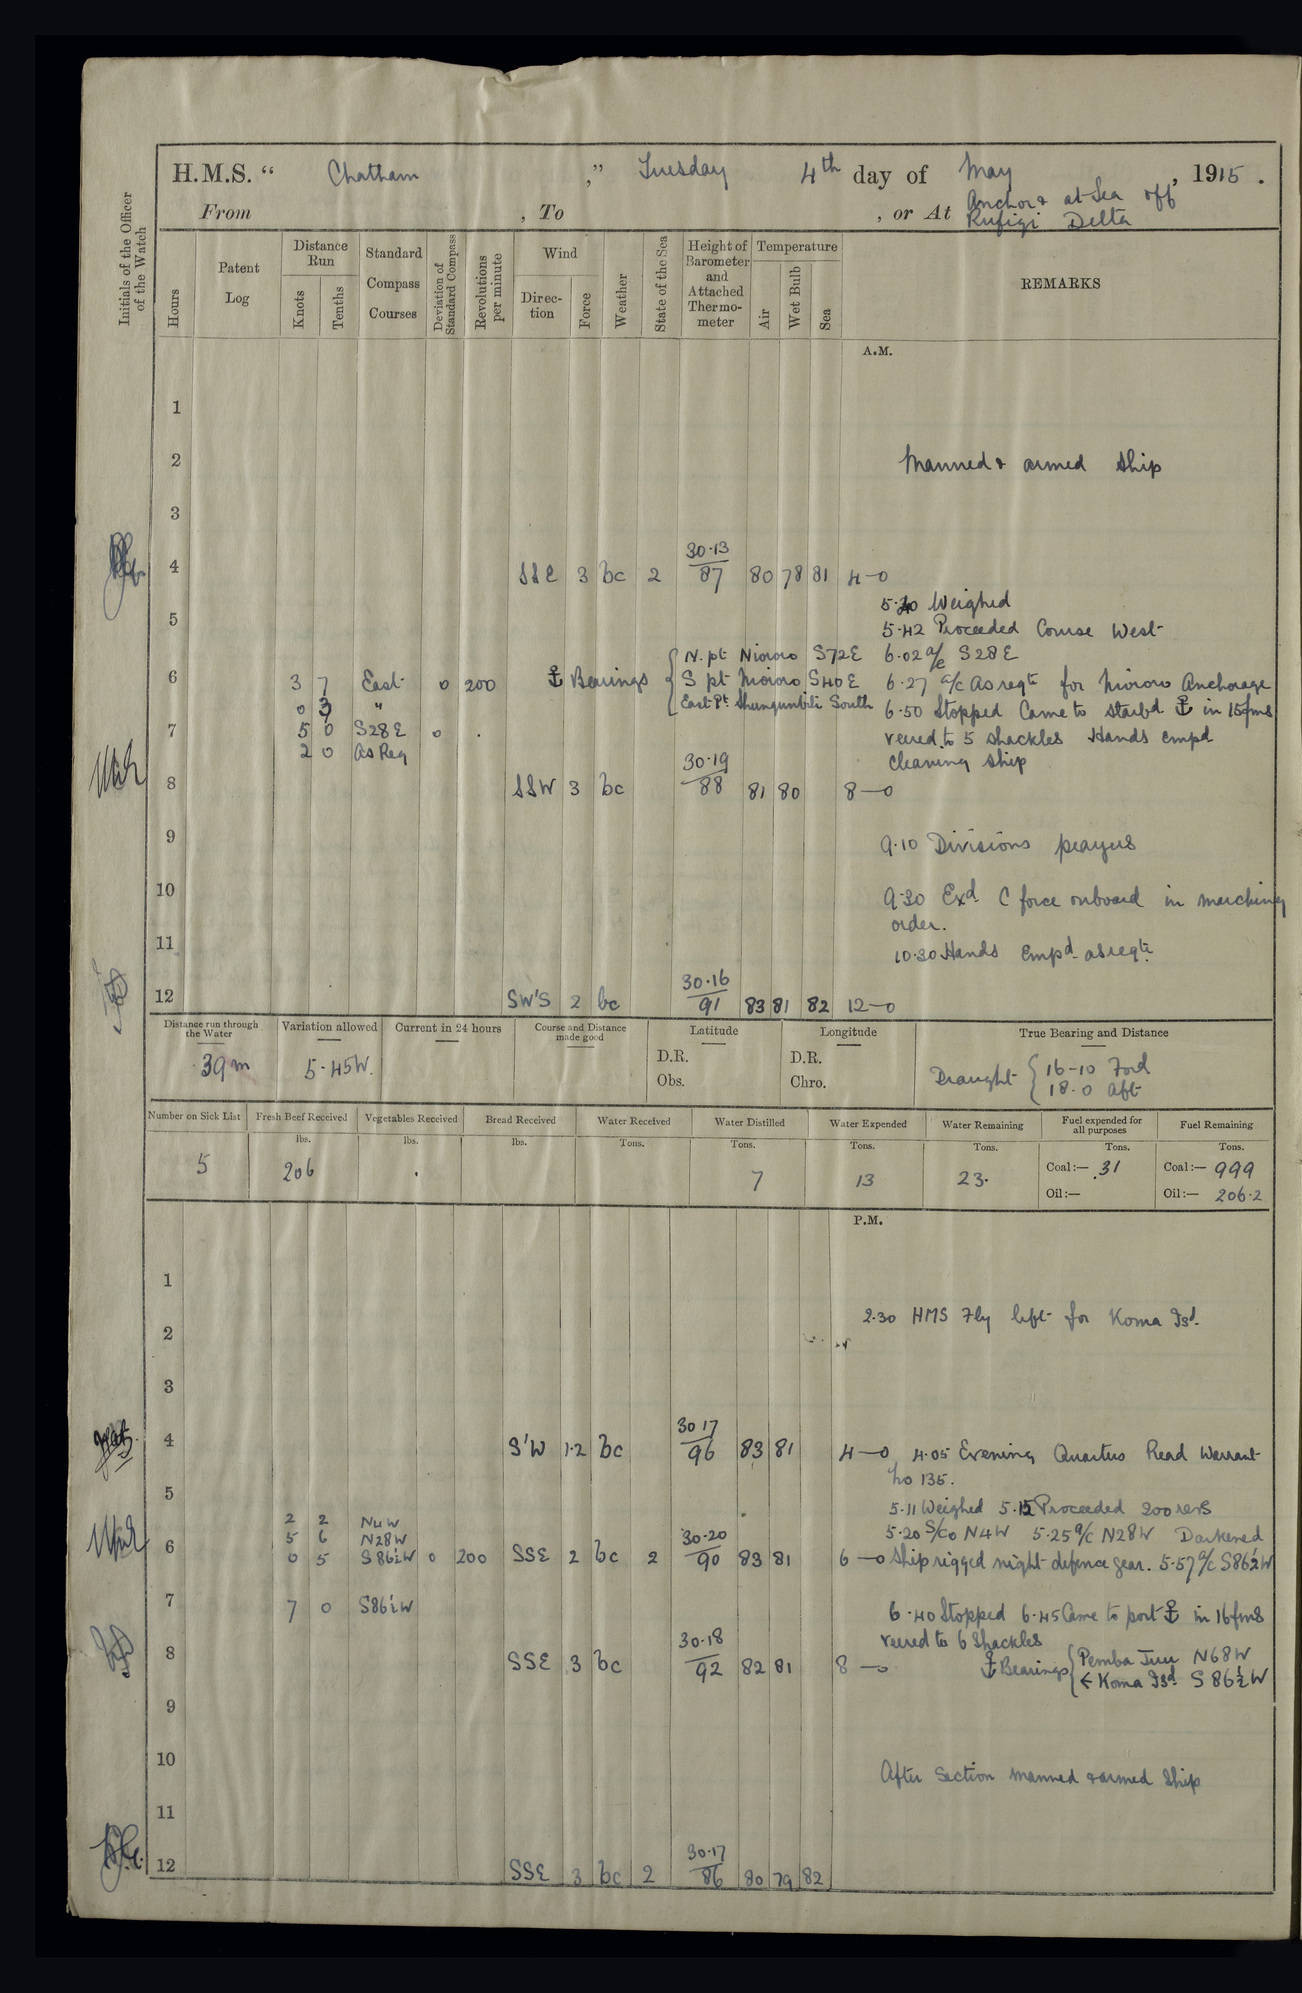 H.M.S. “ Chatham ,” Tuesday 4th day of May , 1915 .
From , To , or At Anchor & at Sea off
Rufigi Delta
Initials of the Officer of the Watch
Hours
Patent Log
Distance Run
Knots
Tenths
Standard Compass Courses
Deviation of Standard Compass
Revolutions per minute
Wind
Direc-tion
Force
Weather
State of the Sea
Height of Barometer and Attached Thermo-meter
Temperature
Air
Wet Bulb
Sea
REMARKS
A.M.
1
2 Manned & armed ship
3
30·13
4 SSE 3 bc 2 87 80 78 81 4—0
5·40 Weighed
5
5·42 Proceeded Course West
N. pt Nioroo S72E 6·02 a/c S28E
6 3 7 East 0 200 ⚓ Bearings S pt Nioroo S40E 6·27 a/c As reqte for Nioroo Anchorage
0 3 " East Pt Shungunbili South 6·50 Stopped Came to starbd ⚓ in 15 fms
7 5 0 S28E 0 . veered to 5 shackles Hands empd
2 0 As Req cleaning ship
30·19
8 SSW 3 bc 88 81 80 8—0
9 9·10 Divisions prayers
10 9·30 Exd C force onboard in marching
order.
11 10·30 Hands Empd as reqte
30·16
12 SW'S 2 bc 91 83 81 82 12—0
Distance run through the Water
Variation allowed
Current in 24 hours
Course and Distance made good
Latitude
Longitude
True Bearing and Distance
39m 5·45W. D.R. D.R. Draught 16-10 Ford
Obs. Chro. 18·0 Aft
Number on Sick List
Fresh Beef Received
Vegetables Received
Bread Received
Water Received
Water Distilled
Water Expended
Water Remaining
Fuel expended for all purposes
Fuel Remaining
lbs. lbs. lbs. Tons. Tons. Tons. Tons. Tons. Tons.
5 206 . 7 13 23· Coal:— 31 Coal:— 999
Oil:— Oil:— 206·2
P.M.
1
2·30 HMS Fly left for Koma Isd.
2
3
30 17
4 S'W 1·2 bc 96 83 81 4—0 4·05 Evening Quarters Read Warrant
No 135.
5
5·11 Weighed 5·15 Proceeded 200 revs
2 2 N4W
5 6 N28W 30·20 5·20 S/Co N4W 5·25 a/c N28W Darkened
6 0 5 S86½W 0 200 SSE 2 bc 2 90 83 81 6—0 Ship rigged night defence gear. 5·57 a/c S86½W
7 7 0 S86½W 6·40 Stopped 6·45 Came to port ⚓ in 16 fms
30·18 veered to 6 Shackles
8 SSE 3 bc 92 82 81 8—0 ⚓ Bearings Pemba Juu N68W
← Koma Isd S86½W
9
10 After Section manned & armed ship
11
30·17
12 SSE 3 bc 2 86 80 79 82